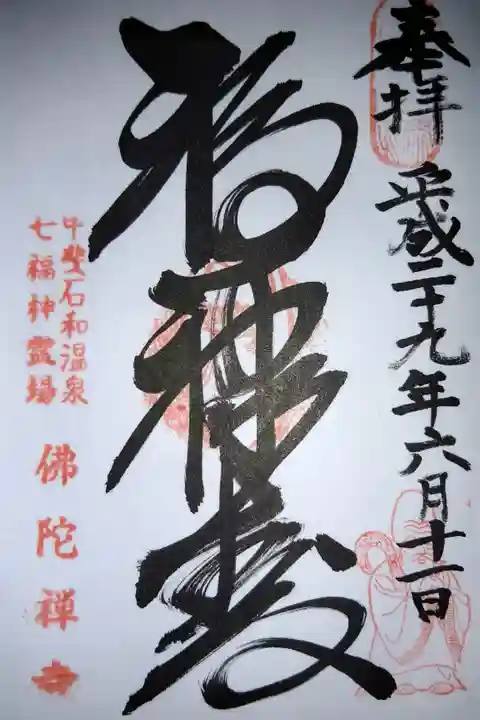 奉拝 平成二十九年六月十一日
福禄寿
甲斐石和温泉
七福神霊場
佛陀禅寺